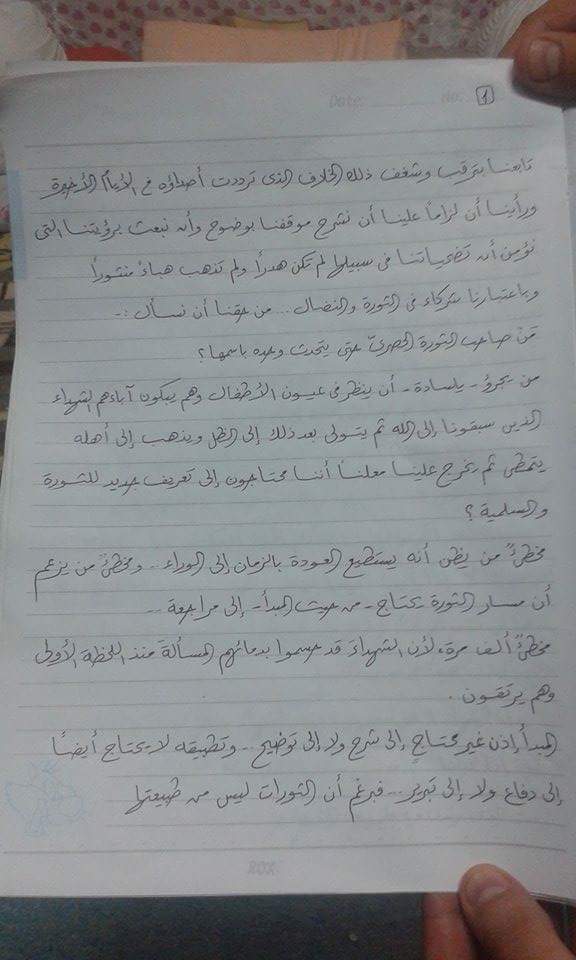 Date: No.
١
تابعنا بترقب وشغف ذلك الخلاف الذى ترددت أصداؤه فى الأيام الأخيرة
ورأينا أن لزاماً علينا أن نشرح موقفنا بوضوح وأن نبعث برؤيتنا التى
نؤمن أن تضحياتنا فى سبيلها لم تكن هدراً ولم تذهب هباءً منثوراً
وباعتبارنا شركاء فى الثورة والنضال ... من حقنا أن نسأل :-
مَنْ صاحب الثورة الحصرىّ حتى يتحدث وحده باسمها؟
من يجرؤ - ياسادة - أن ينظر فى عيون الأطفال وهم يبكون آباءهم الشهداء
الذين سبقونا إلى الله ثم يتولى بعد ذلك إلى الظل ويذهب إلى أهله
يتمطى ثم يخرج علينا معلناً أننا محتاجون إلى تعريف جديد للثورة
والسلمية ؟
مخطئٌ من يظن أنه يستطيع العودة بالزمان إلى الوراء .. ومخطئٌ من يزعم
أن مسار الثورة يحتاج - من حيث المبدأ - إلى مراجعة ..
مخطئٌ ألف مرة، لأن الشهداء قد حسموا بدمائهم المسألة منذ اللحظة الأولى
وهم يرتقون .
المبدأ إذن غير محتاجٍ إلى شرح ولا إلى توضيح .. وتطبيقه لا يحتاج أيضاً
إلى دفاع ولا إلى تبرير ... فبرغم أن الثورات ليس من طبيعتها
ROX